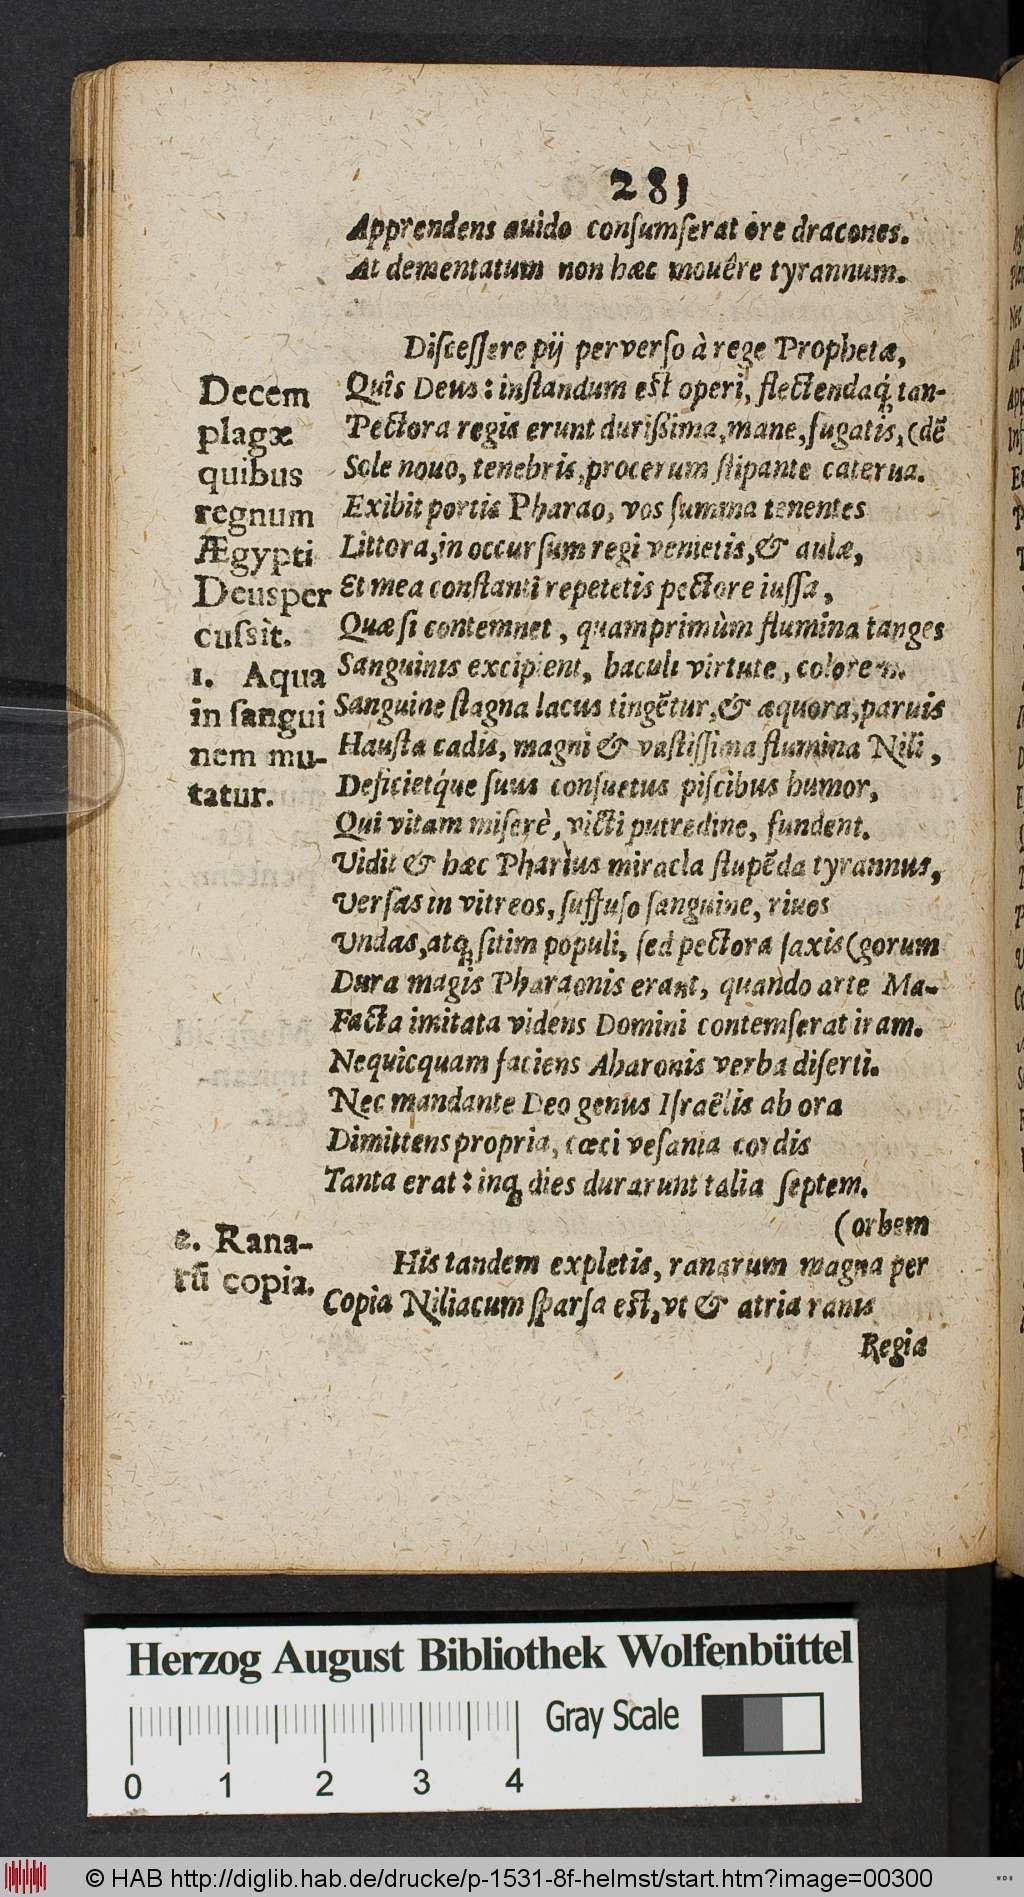 281
Apprendens auido conſumſerat ore dracones.
At dementatum non hæc mouêre tyrannum.
Diſceſſere pij perverſo à rege Prophetæ,
Quîs Deus: inſtandum eſt operi, flectendaq́; tan-
Pectora regis erunt duriſſima, mane, fugatis, (dē
Sole nouo, tenebris, procerum ſtipante caterua.
Exibit portis Pharao, vos ſumma tenentes
Littora, in occurſum regi venietis, & aulæ,
Et mea conſtanti repetetis pectore iuſſa,
Quæ ſi contemnet, quamprimùm flumina tanges
Sanguinis excipient, baculi virtute, colorem.
Sanguine ſtagna lacus tingētur, & æquora, paruis
Hauſta cadis, magni & vaſtiſſima flumina Nili,
Deficiet́que ſuus conſuetus piſcibus humor,
Qui vitam miſerè, victi putredine, fundent.
Vidit & hæc Pharius miracla ſtupēda tyrannus,
Verſas in vitreos, ſuffuſo ſanguine, riuos
Vndas, atq; ſitim populi, ſed pectora ſaxis (gorum
Dura magis Pharaonis erant, quando arte Ma-
Facta imitata videns Domini contemſerat iram.
Nequicquam faciens Aharonis verba diſerti.
Nec mandante Deo genus Iſraëlis ab ora
Dimittens propria, cœci veſania cordis
Tanta erat: inq; dies durarunt talia ſeptem.
(orbem
His tandem expletis, ranarum magna per
Copia Niliacum ſparſa eſt, vt & atria ranis
Regia
Decem
plagæ
quibus
regnum
Ægypti
Deus per
cuſsit.
1. Aqua
in ſangui
nem mu-
tatur.
2. Rana-
rū copia.
Herzog August Bibliothek Wolfenbüttel
Gray Scale
0 1 2 3 4
© HAB http://diglib.hab.de/drucke/p-1531-8f-helmst/start.htm?image=00300